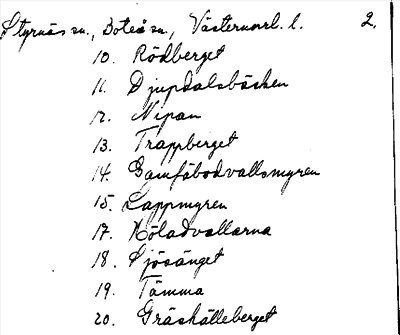 Styrnäs sn., Boteå sn., Västernorrl. l. 2.
10. Rödberget
11. Djupdalsbäcken
12. Nipan
13. Trappberget
14. Gamfäbodvallsmyren
15. Lappmyren
17. Höladvallarna
18. Sjösänget
19. Tämma
20. Gräshälleberget